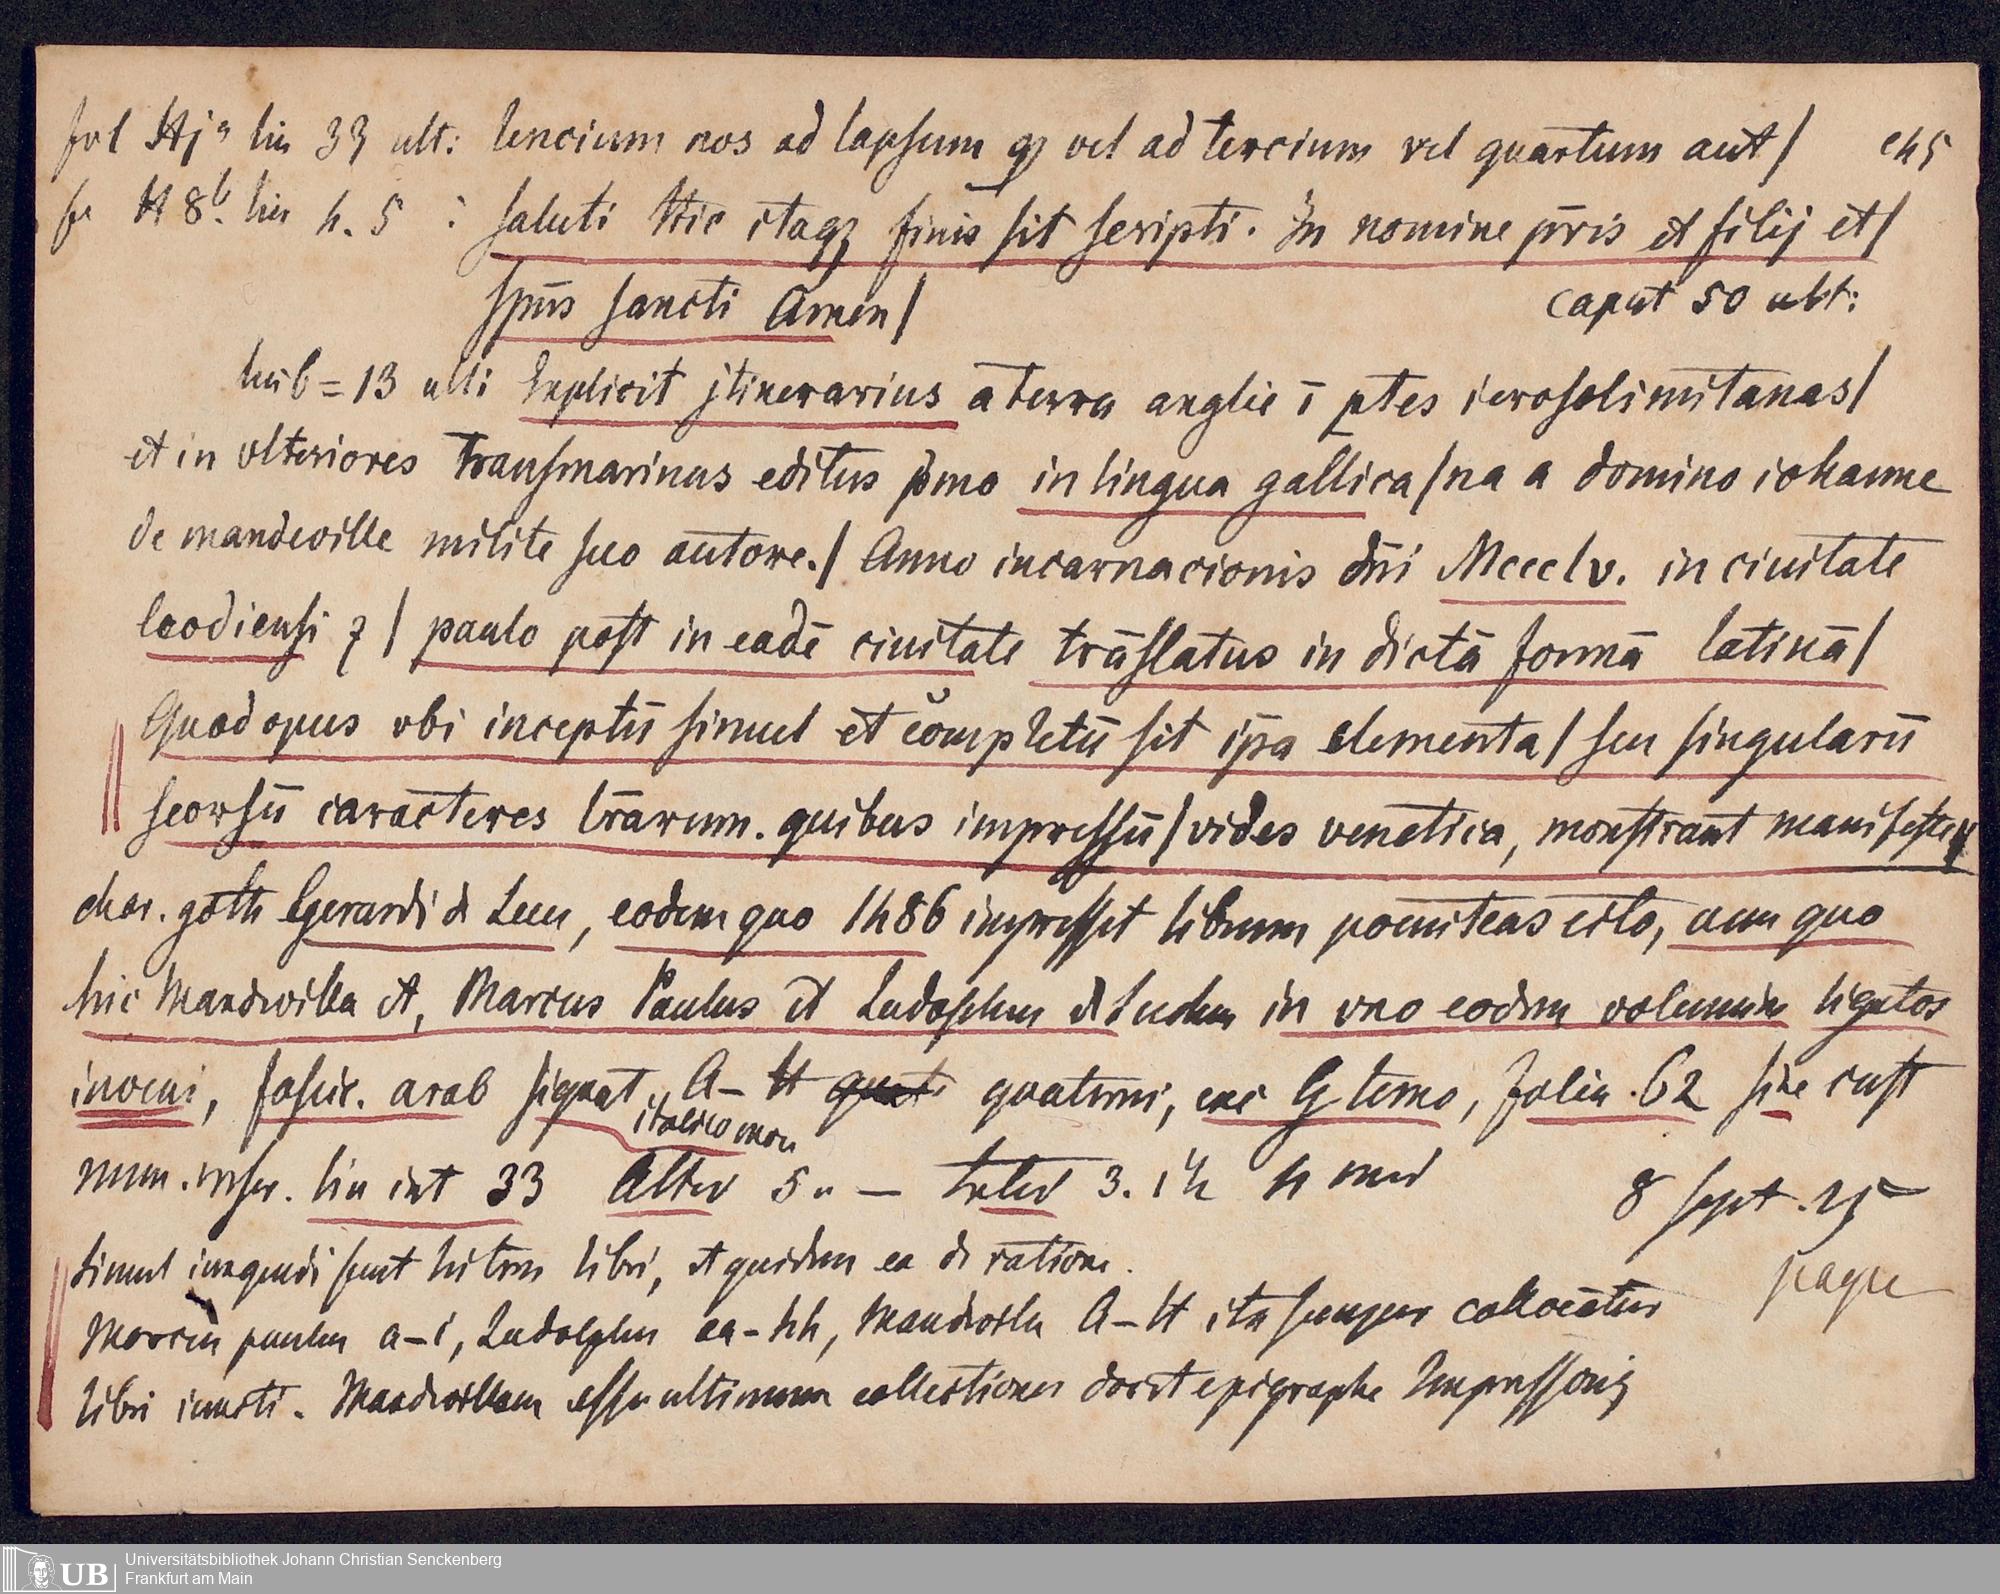 fol Hjª lin 33 ult: lencium nos ad lapsum qȝ vel ad tercium vel quartum aut/
fo H 8b. lin 4. 5 : saluti Hic itaqȝ finis sit scripti. In nomine pr̄is et filij et/
spūs sancti Amen/ caput 50 ult:
lin 6 = 13 ulti Explicit jtinerarius a terra anglie ī ptes ierosolimitanas/
et in vlteriores transmarinas editus pmo in lingua gallica/na a domino iohanne
de mandeville milite suo autore./ Anno incarnacionis dn̄i Mccclv. in ciuitate
leodiensi ⁊ / paulo post in eadē ciuitate trāslatus in dictā formā latinā/
Quod opus vbi inceptū simul et cōmpletū sit ip̄a elementa/ seu singularū
seorsū caracteres lr̄arum. quibus impressū/ vides venetica, monstrant manifeste
char. goth Gerardi de Leeu, eodem quo 1486 impressit librum poeniteas cito, cum quo
hic Mandevilla et, Marcus Paulus et Ludolphus de Suchen in vno eodem volumine ligatos
inveni, fascic. arab signat. A – H quaterni, exc G terno, folia. 62 sine cust
italico mon
num. inscr. lin int 33 Alter 5
8 sept. 25
Simul iungendi sunt hi tres libri, et quidem ea de ratione.
Marcus paulus a–i, Ludolphus aa–hh, Mandevilla A–H ita semper collocātur
libri iuncti. Mandevillam esse ultimum collectionis docet epigraphe Impressoris